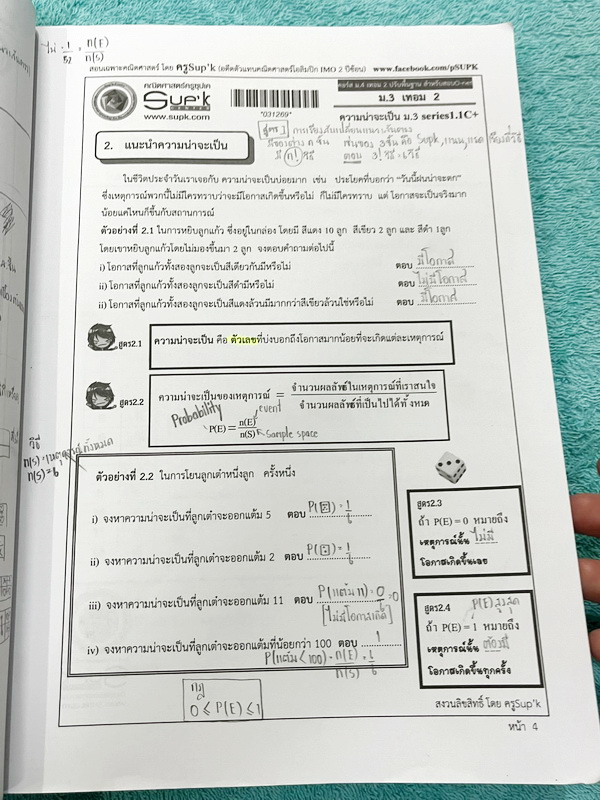 ไม่ = 1/52 = n(E)/n(S)
สอนเฉพาะคณิตศาสตร์ โดย ครูSup'k (อดีตตัวแทนคณิตศาสตร์โอลิมปิก IMO 2 ปีซ้อน) www.facebook.com/pSUPK
คณิตศาสตร์ครูซุปเค
SUP'K
CENTER
www.supk.com
*031269*
คอร์ส ม.4 เทอม 2 ปรับพื้นฐาน สำหรับสอบO-net
ม.3 เทอม 2
ความน่าจะเป็น ม.3 series1.1C+
สูตร1
มีของต่าง n ชิ้น เช่นของ 3 ชิ้นคือ Supk,
มี n! วิธี ตอบ 3! วิธี = 6 วิธี
2. แนะนำความน่าจะเป็น
ในชีวิตประจำวันเราเจอกับ ความน่าจะเป็นบ่อยมาก เช่น ประโยคที่บอกว่า "วันนี้ฝนน่าจะตก"
ซึ่งเหตุการณ์พวกนี้ไม่มีใครทราบว่าจะมีโอกาสเกิดขึ้นหรือไม่ ก็ไม่มีใครทราบ แต่ โอกาสจะเป็นจริงมาก
น้อยแค่ไหนก็ขึ้นกับสถานการณ์
ตัวอย่างที่ 2.1 ในการหยิบลูกแก้ว ซึ่งอยู่ในกล่อง โดยมี สีแดง 10 ลูก สีเขียว 2 ลูก และ สีดำ 1ลูก
โดยเขาหยิบลูกแก้วโดยไม่มองขึ้นมา 2 ลูก จงตอบคำถามต่อไปนี้
i) โอกาสที่ลูกแก้วทั้งสองลูกจะเป็นสีเดียวกันมีหรือไม่ ตอบ มีโอกาส
ii) โอกาสที่ลูกแก้วทั้งสองลูกจะเป็นสีดำมีหรือไม่ ตอบ ไม่มีโอกาส
ii) โอกาสที่ลูกแก้วทั้งสองลูกจะเป็นสีแดงล้วนมีมากกว่าสีเขียวล้วนใช่หรือไม่ ตอบ มีโอกาส
สูตร2.1
ความน่าจะเป็น คือ ตัวเลขที่บ่งบอกถึงโอกาสมากน้อยที่จะเกิดแต่ละเหตุการณ์
สูตร2.2
ความน่าจะเป็นของเหตุการณ์ = จำนวนผลลัพธ์ในเหตุการณ์ที่เราสนใจ
จำนวนผลลัพธ์ที่เป็นไปได้ทั้งหมด
Probability
event
P(E) = n(E)
n(S) Sample space
วิธี
n(S) = เหตุการณ์ทั้งหมด
n(S) = 6
ตัวอย่างที่ 2.2 ในการโยนลูกเต๋าหนึ่งลูก ครั้งหนึ่ง
i) จงหาความน่าจะเป็นที่ลูกเต๋าจะออกแต้ม 5 ตอบ P(⚄) = 1/6
ii) จงหาความน่าจะเป็นที่ลูกเต๋าจะออกแต้ม 2 ตอบ P(⚁) = 1/6
iii) จงหาความน่าจะเป็นที่ลูกเต๋าจะออกแต้ม 11 ตอบ P(แต้ม 11) = 0/6 = 0
[ไม่มีโอกาสเกิด]
iv) จงหาความน่าจะเป็นที่ลูกเต๋าจะออกแต้มที่น้อยกว่า 100 ตอบ 1
P(แต้ม < 100) = n(E)/n(S) = 1/6
สูตร2.3
ถ้า P(E) = 0 หมายถึง
เหตุการณ์นั้น ไม่มี
โอกาสเกิดขึ้นเลย
สูตร2.4 P(E) สูงสุด
ถ้า P(E) = 1 หมายถึง
เหตุการณ์นั้น ต้องมี
โอกาสเกิดขึ้นทุกครั้ง
กฎ
0 ≤ P(E) ≤ 1
สงวนลิขสิทธิ์ โดย ครูSup'k
หน้า 4